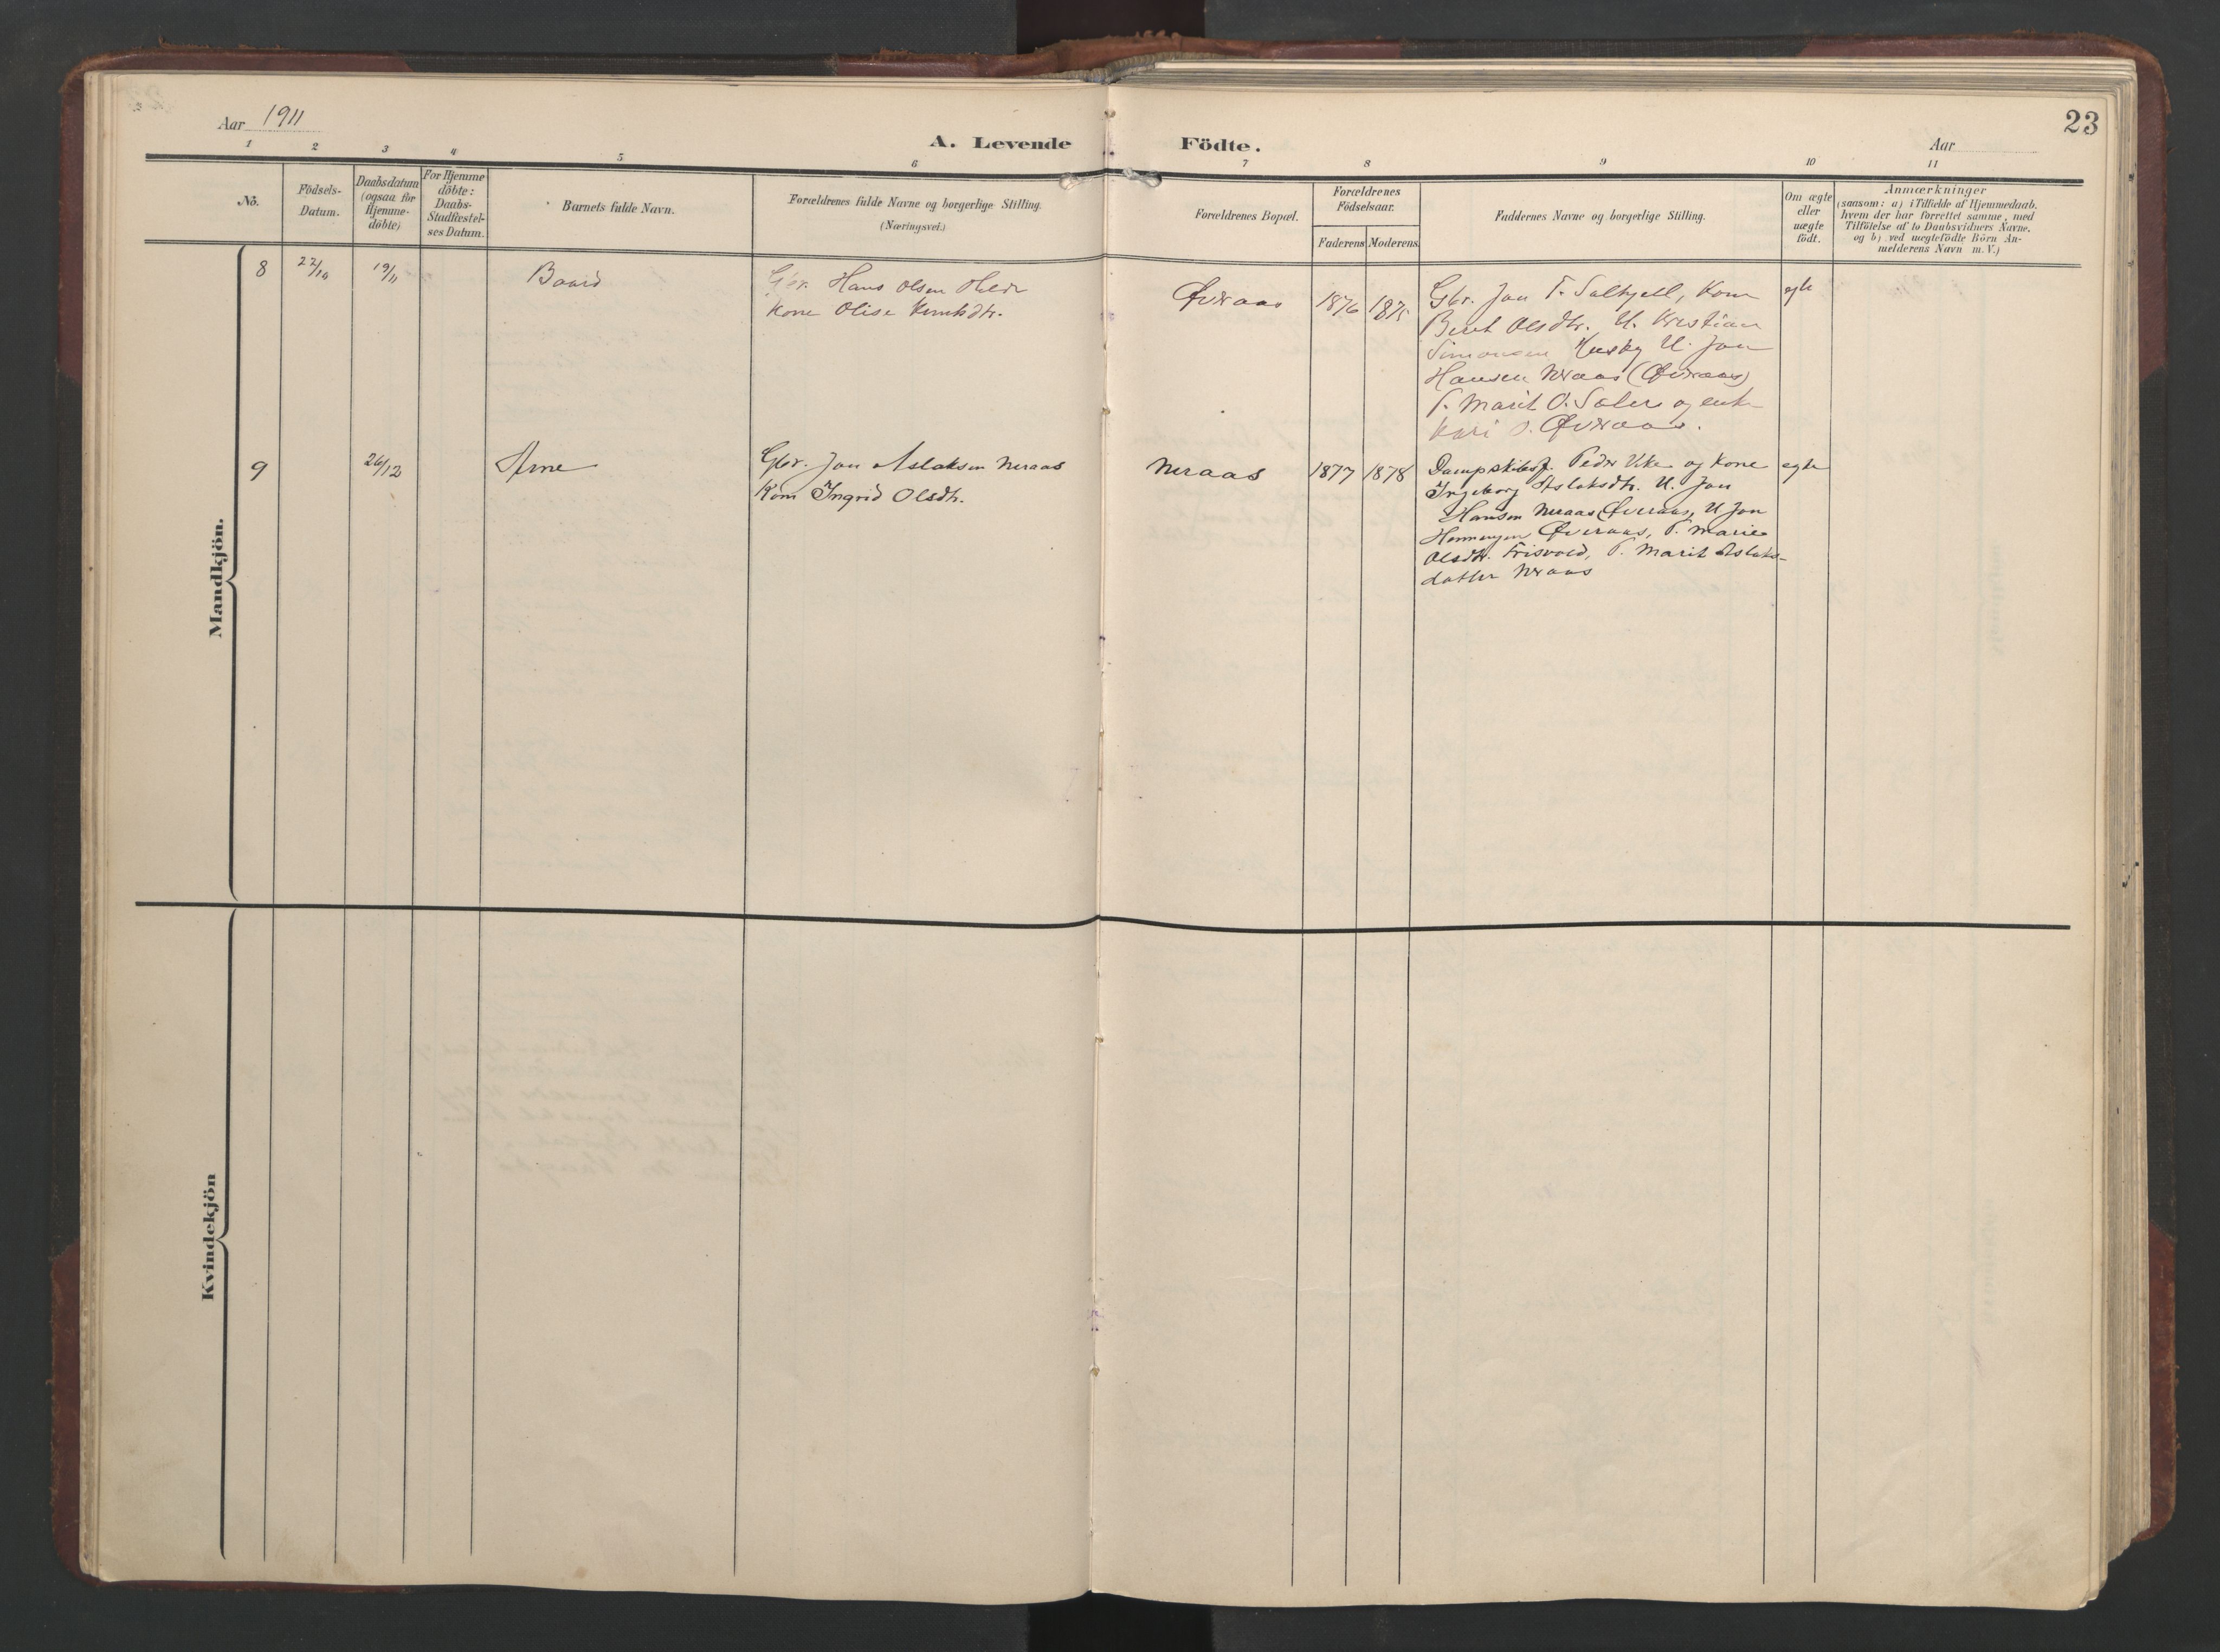 23
Aar 1911
A. Levende Födte.
Aar
1 2 3 4 5 6 7 8 9 10 11
No.
Födsels-
Datum.
Daabsdatum
(ogsaa for
Hjemme-
döbte)
For Hjemme
döbte:
Daabs-
Stadfæstel-
ses Datum.
Barnets fulde Navn.
Forældrenes fulde Navne og borgerlige Stilling.
(Næringsvei.)
Forældrenes Bopæl.
Forældrenes
Födselsaar.
Faderens Moderens
Faddernes Navne og borgerlige Stilling.
Om ægte
eller
uægte
födt.
Anmærkninger
(saasom: a) i Tilfælde af Hjemmedaab,
hvem der har forrettet samme, med
Tilföielse af to Daabsvidners Navne,
og b) ved uægtefödte Börn An-
melderens Navn m. V.)
Mandkjön.
8 22/10 19/11 Baard
Gbr. Hans Olsen
Kone Olise
Øveraas 1876 1875
Gbr. Jan T. Solhjell, Kone
Berit Olsdtr. U. Kristian
Simonsen Husby U. Jon
Hansen Neraas (Øveraas)
P. Marit O. og enk
Kari Øveraas.
egte
9 26/12 Arne
Gbr. Jon Aslaksen Neraas
Kone Ingrid Olsdtr.
Neraas 1877 1878
Peder Vike og Kone
Ingeborg Aslaksdtr. U. Jon
Hansen Neraas (Øveraas, U Jon
Øveraas, P. Marie
Olsdtr. Frisvold, P. Marit Aslaks-
datter Neraas
egte
Kvindekjön